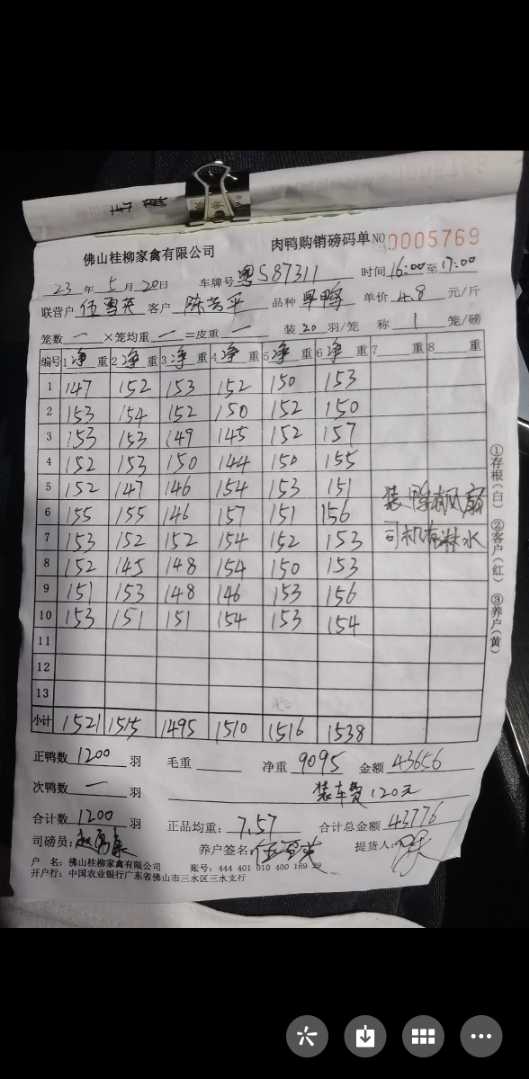 佛山桂柳家禽有限公司 肉鸭购销磅码单 NO 0005769
23 年 5 月 20 日 车牌号 粤S87311 时间 16:00 至 17:00
联营户 伍雪英 客户 陈志平 品种 单价 4.8 元/斤
笼数 一 ×笼均重 一 =皮重 一 装 20 羽/笼 称 1 笼/磅
编号 1 净 重 2 净 重 3 净 重 4 净 重 5 净 重 6 净 重 7 重 8 重
1 147 152 153 152 150 153
2 153 154 152 150 152 150
3 153 153 149 145 152 157
4 152 153 150 144 150 155
5 152 147 146 154 153 151
6 155 155 146 157 151 156
7 153 152 152 154 152 153
8 152 145 148 154 150 153
9 151 153 148 146 153 156
10 153 151 151 154 153 154
11
12
13
小计 1521 1515 1495 1510 1516 1538
装鸭有风扇
司机有淋水
①存根(白) ②客户(红) ③养户(黄)
正鸭数 1200 羽 毛重 净重 9095 金额 43656
次鸭数 一 羽 装车费120元
合计数 1200 羽 正品均重: 7.57 合计总金额 43776
司磅员: 养户签名: 提货人:
户 名: 佛山桂柳家禽有限公司 账号: 444 401 010 400 169
开户行: 中国农业银行广东省佛山市三水区三水支行